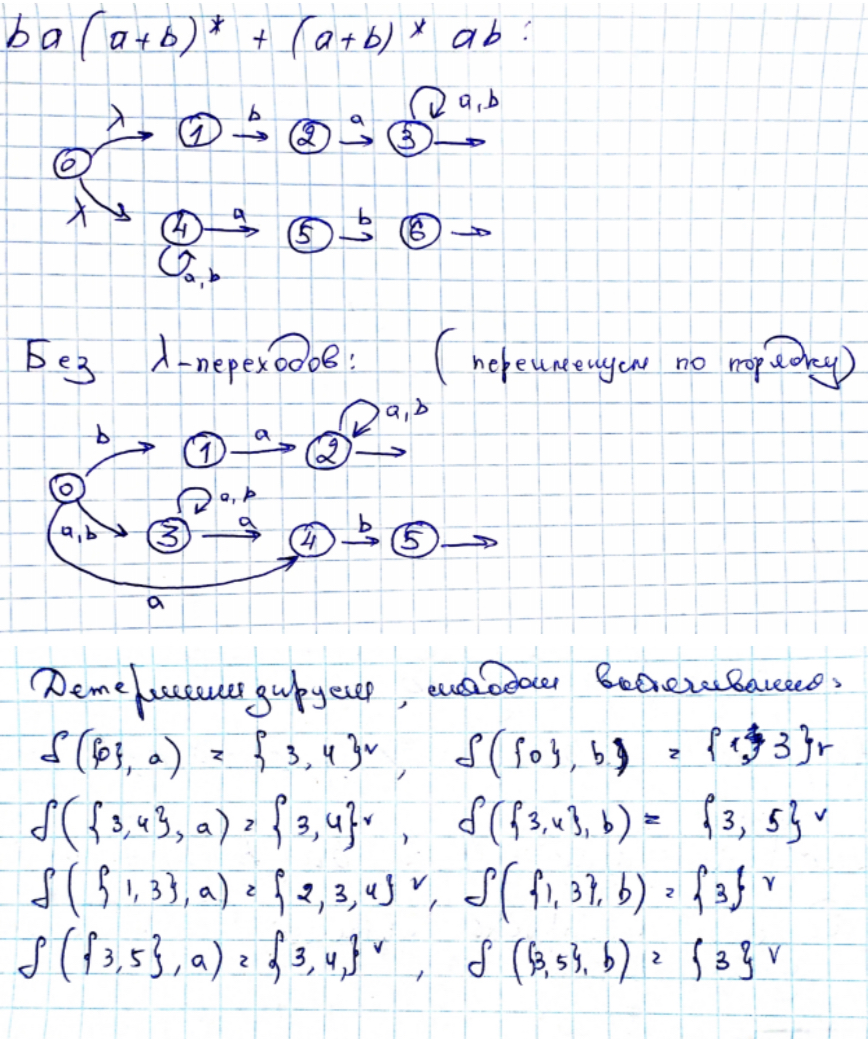 ba(a+b)* + (a+b)* ab:
λ b a a,b
0 1 2 3
λ a b
4 5 6
a,b
Без λ-переходов: (переименуем по порядку)
b a a,b
0 1 2
a,b a,b a b
3 4 5
a
Детерминизируем, методом вытягивания:
δ({0}, a) = {3, 4}ᵛ, δ({0}, b) = {1, 3}ᵛ
δ({3,4}, a) = {3,4}ᵛ, δ({3,4}, b) = {3, 5}ᵛ
δ({1,3}, a) = {2,3,4}ᵛ, δ({1,3}, b) = {3}ᵛ
δ({3,5}, a) = {3,4,}ᵛ, δ({3,5}, b) = {3}ᵛ